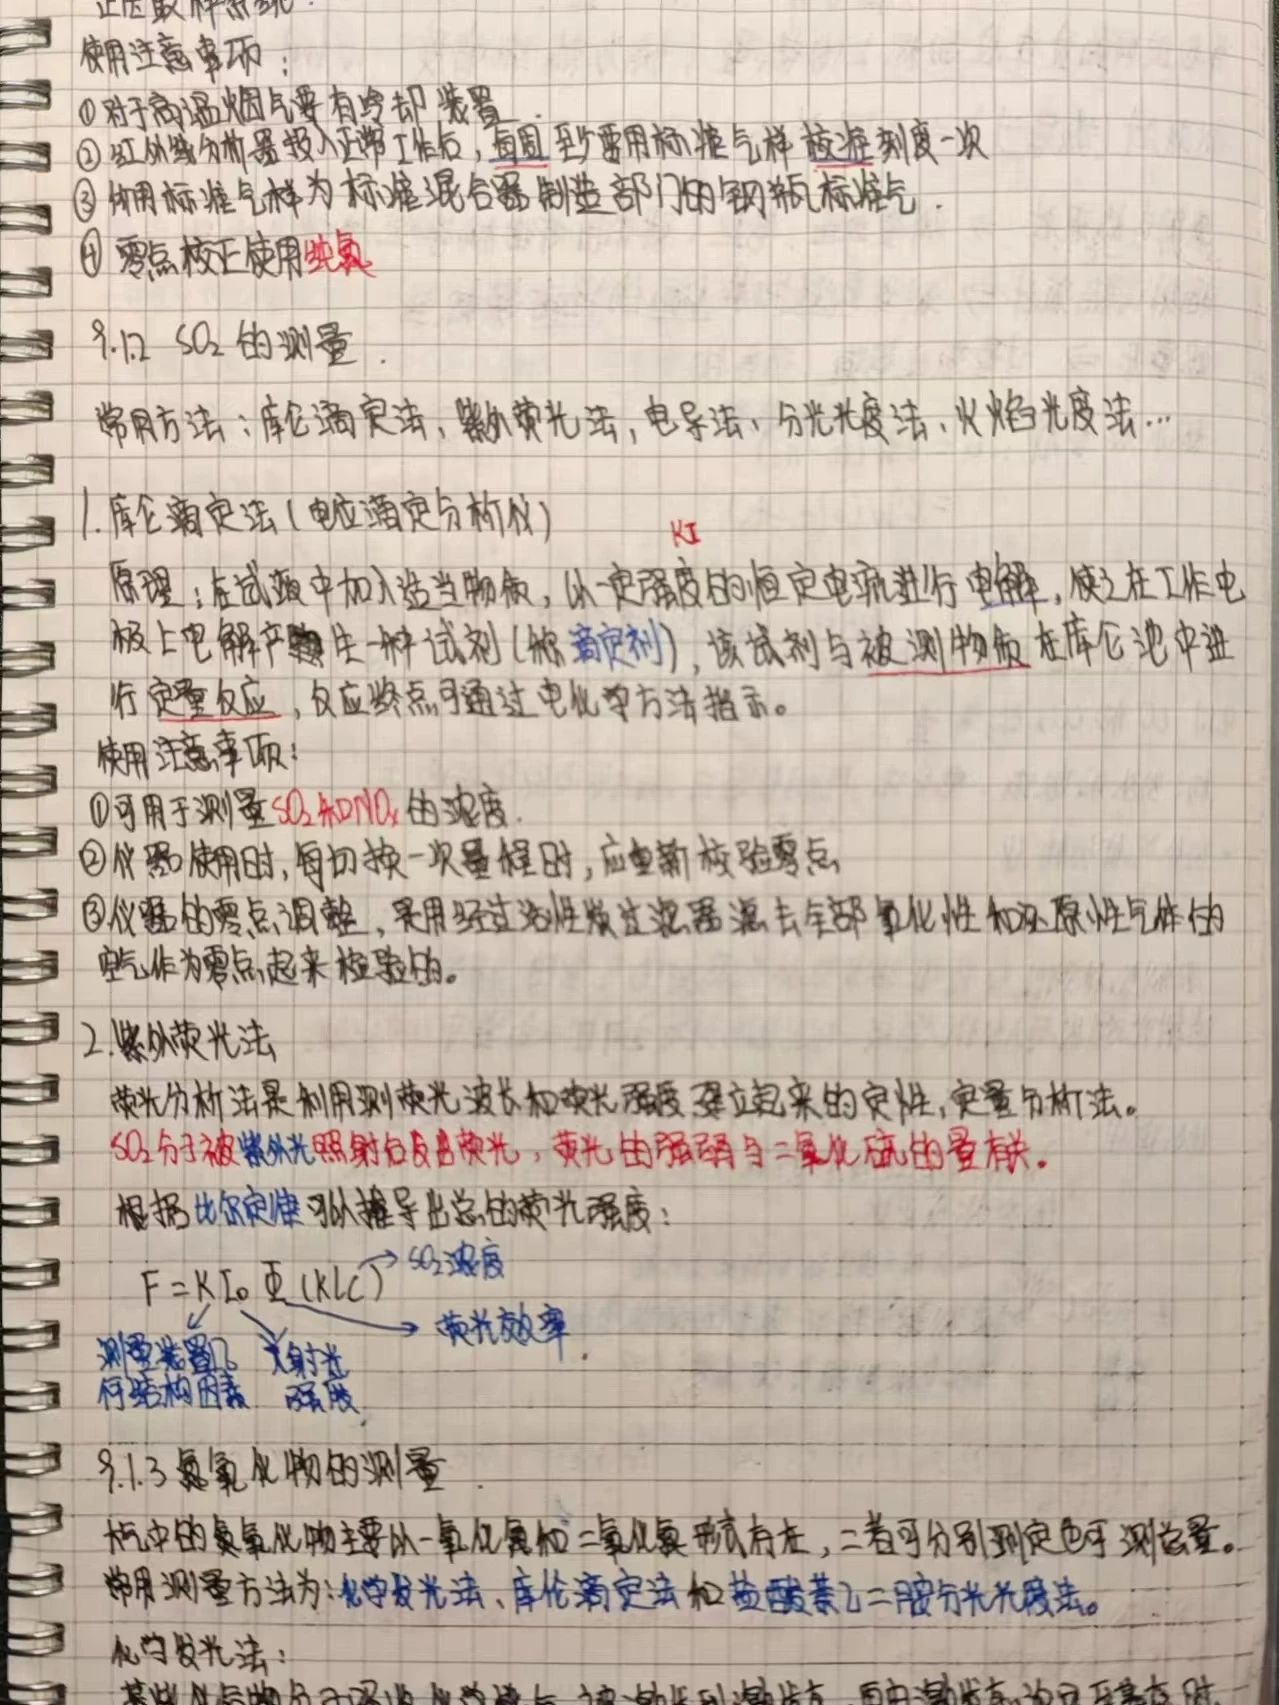 使用注意事项：
①对于高温烟气要有冷却装置.
②红外线分析器投入正常工作后，每周至少需用标准气样校准刻度一次
③所用标准气样为标准混合器制造部门的钢瓶标准气.
④零点校正使用纯氮
9.1.2 SO₂的测量.
常用方法：库仑滴定法、紫外荧光法，电导法、分光光度法、火焰光度法…
1.库仑滴定法（电位滴定分析仪）
KI
原理：在试液中加入适当物质，以一定强度的恒定电流进行电解，使之在工作电
极上电解产生一种试剂（称滴定剂），该试剂与被测物质在库仑池中进
行定量反应，反应终点可通过电化学方法指示。
使用注意事项：
①可用于测量SO₂和NOₓ的浓度.
②仪器使用时，每切换一次量程时，应重新校验零点
③仪器的零点调整，采用经过活性炭过滤器滤去全部氧化性和还原性气体的
空气作为零点起来检验的。
2.紫外荧光法
荧光分析法是利用测荧光波长和荧光强度建立起来的定性，定量分析法。
SO₂分子被紫外光照射后发出荧光，荧光的强弱与二氧化硫的量有关。
根据比尔定律可以推导出总的荧光强度：
F=KI₀Φ(KLC) → SO₂浓度
荧光效率.
测量装置几 入射光
何结构因素 强度.
9.1.3 氮氧化物的测量.
大气中的氮氧化物主要以一氧化氮和二氧化氮形式存在，二者可分别测定也可测总量。
常用测量方法为：化学发光法、库伦滴定法和盐酸萘乙二胺分光光度法。
化学发光法：